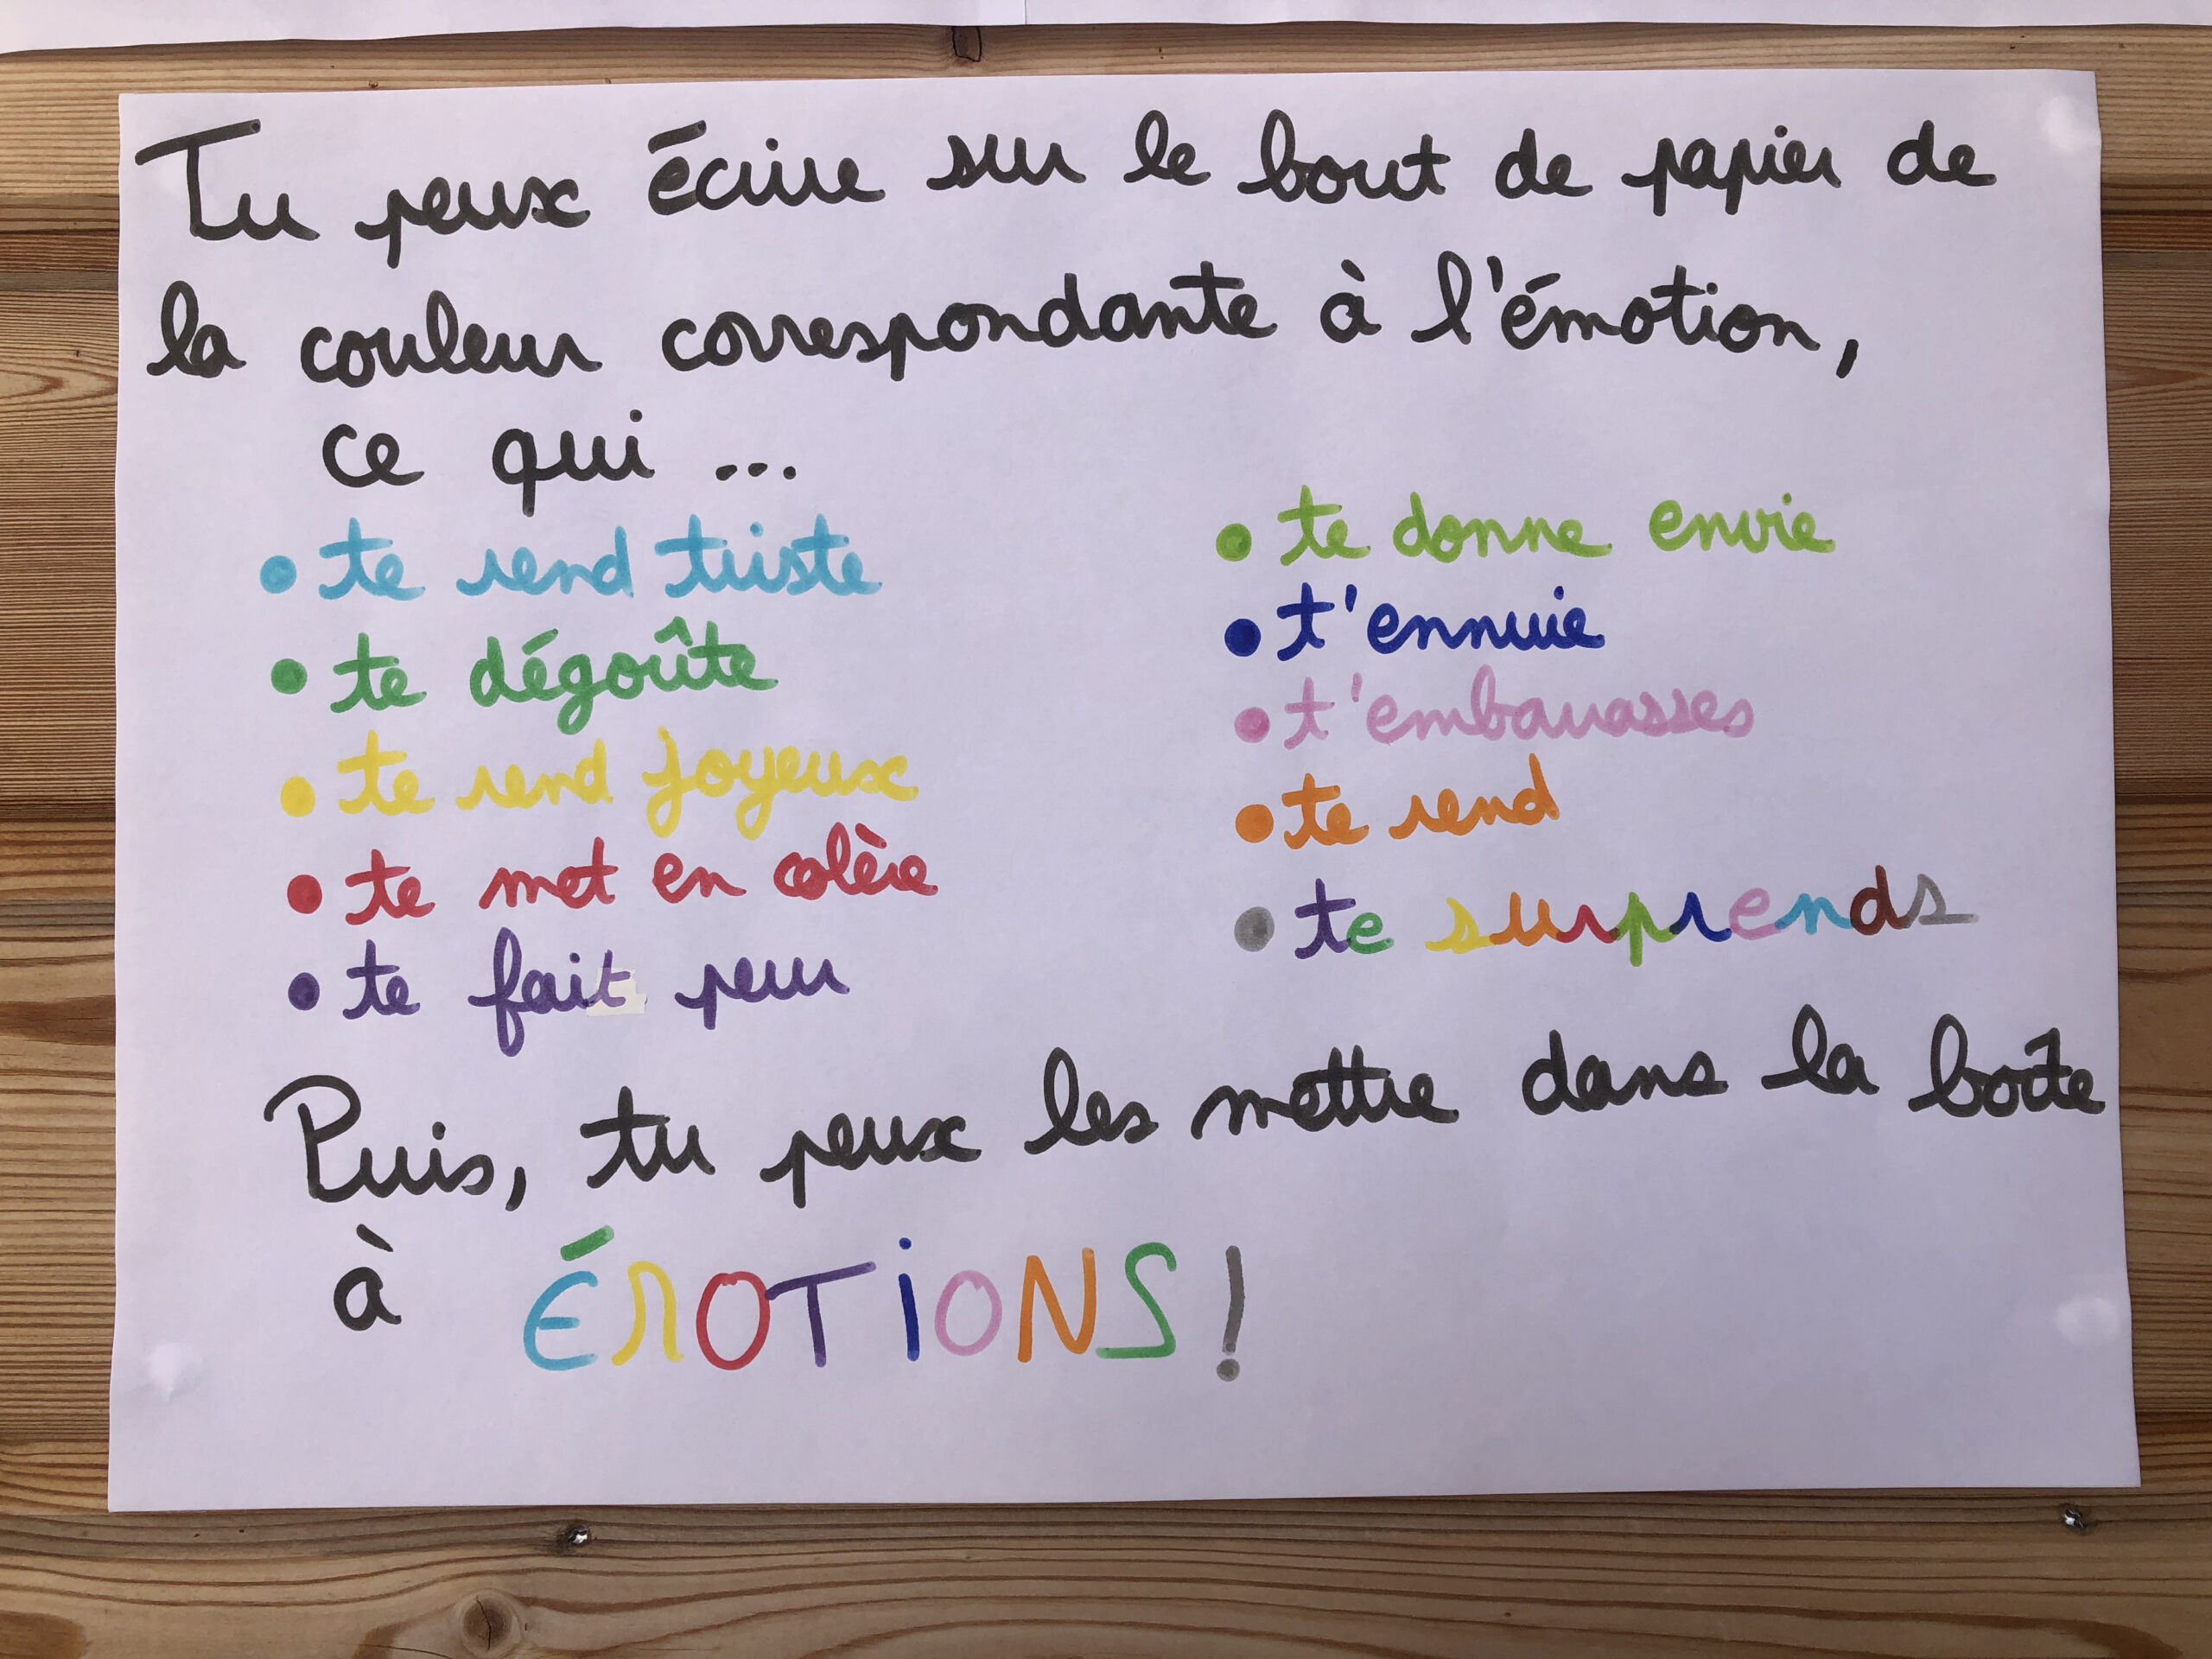 Tu peux écrire sur le bout de papier de
la couleur correspondante à l'émotion,
ce qui ...
• te rend triste
• te dégoûte
• te rend joyeux
• te met en colère
• te fait peur
• te donne envie
• t'ennuie
• t'embarasses
• te rend
• te surprends
Puis, tu peux les mettre dans la boîte
à ÉMOTIONS !